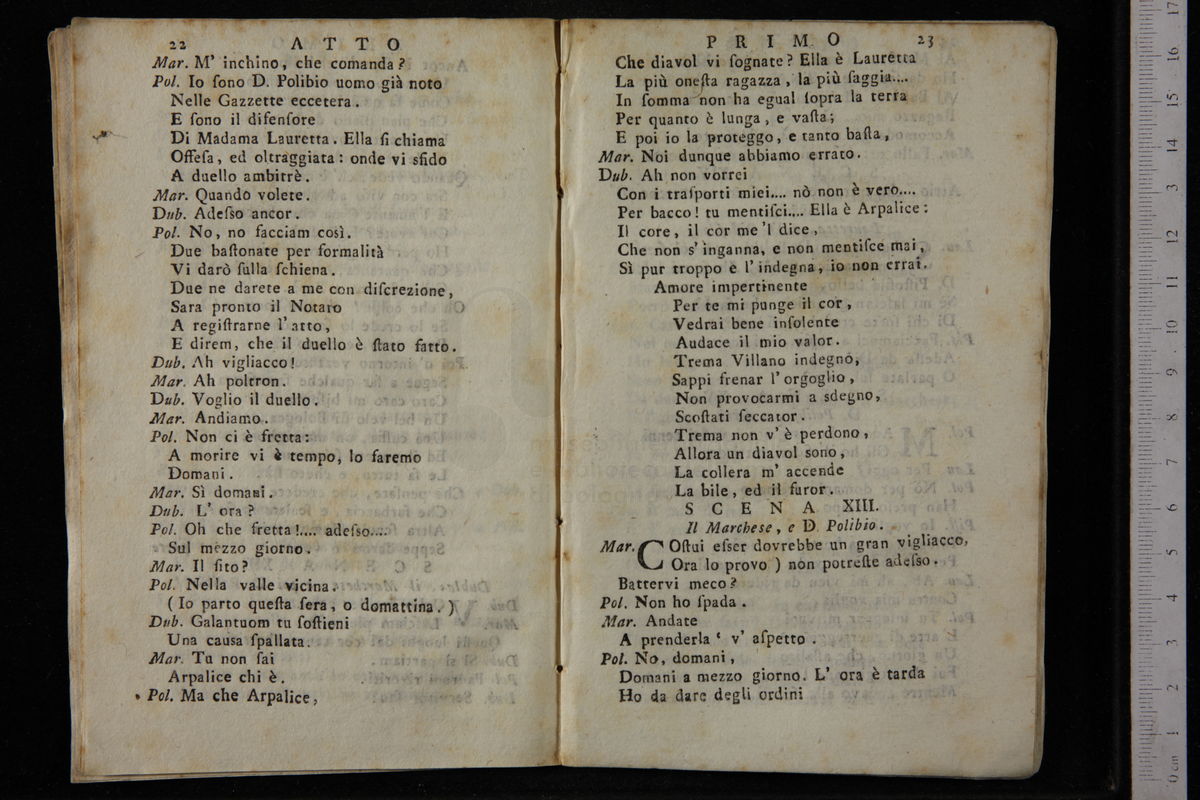 22 ATTO
Mar. M' inchino, che comanda?
Pol. Io ſono D. Polibio uomo già noto
Nelle Gazzette eccetera.
E ſono il difenſore
Di Madama Lauretta. Ella ſi chiama
Offeſa, ed oltraggiata: onde vi sfido
A duello ambitrè.
Mar. Quando volete.
Dub. Adeſso ancor.
Pol. No, no facciam così.
Due baſtonate per formalità
Vi darò ſulla ſchiena.
Due ne darete a me con diſcrezione,
Sara pronto il Notaro
A regiſtrarne l'atto,
E direm, che il duello è ſtato fatto.
Dub. Ah vigliacco!
Mar. Ah poltron.
Dub. Voglio il duello.
Mar. Andiamo.
Pol. Non ci è fretta:
A morire vi è tempo, lo faremo
Domani.
Mar. Sì domani.
Dub. L' ora?
Pol. Oh che fretta!.... adeſso....
Sul mezzo giorno.
Mar. Il ſito?
Pol. Nella valle vicina.
( Io parto queſta ſera, o domattina. )
Dub. Galantuom tu ſoſtieni
Una cauſa ſpallata.
Mar. Tu non ſai
Arpalice chi è.
Pol. Ma che Arpalice,
PRIMO 23
Che diavol vi ſognate? Ella è Lauretta
La più oneſta ragazza, la più ſaggia....
In ſomma non ha egual ſopra la terra
Per quanto è lunga, e vaſta;
E poi io la proteggo, e tanto baſta,
Mar. Noi dunque abbiamo errato.
Dub. Ah non vorrei
Con i traſporti miei.... nò non è vero....
Per bacco! tu mentiſci.... Ella è Arpalice:
Il core, il cor me'l dice,
Che non s'inganna, e non mentiſce mai,
Sì pur troppo è l'indegna, io non errai.
Amore impertinente
Per te mi punge il cor,
Vedrai bene inſolente
Audace il mio valor.
Trema Villano indegno,
Sappi frenar l'orgoglio,
Non provocarmi a sdegno,
Scoſtati ſeccator.
Trema non v'è perdono,
Allora un diavol sono,
La collera m' accende
La bile, ed il furor.
SCENA XIII.
Il Marcheſe, e D. Polibio.
Mar. COſtui eſser dovrebbe un gran vigliacco,
Ora lo provo ) non potreſte adeſso.
Battervi meco?
Pol. Non ho ſpada.
Mar. Andate
A prenderla ‘ v' aſpetto.
Pol. No, domani,
Domani a mezzo giorno. L' ora è tarda
Ho da dare degli ordini